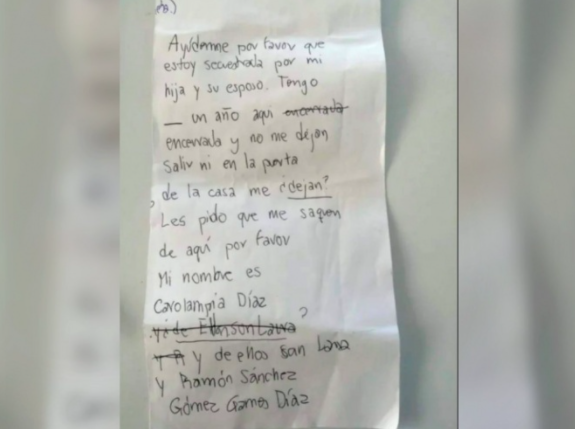 Ayúdenme por favor que
estoy secuestrada por mi
hija y su esposo. Tengo
— un año aqui encerrada
encerrada y no me dejan
salir ni en la puerta
de la casa me ¿dejan?
Les pido que me saquen
de aquí por favor
Mi nombre es
Carolampia Díaz
y de ellos son
y Ramón Sánchez
Gómez Gomes Díaz